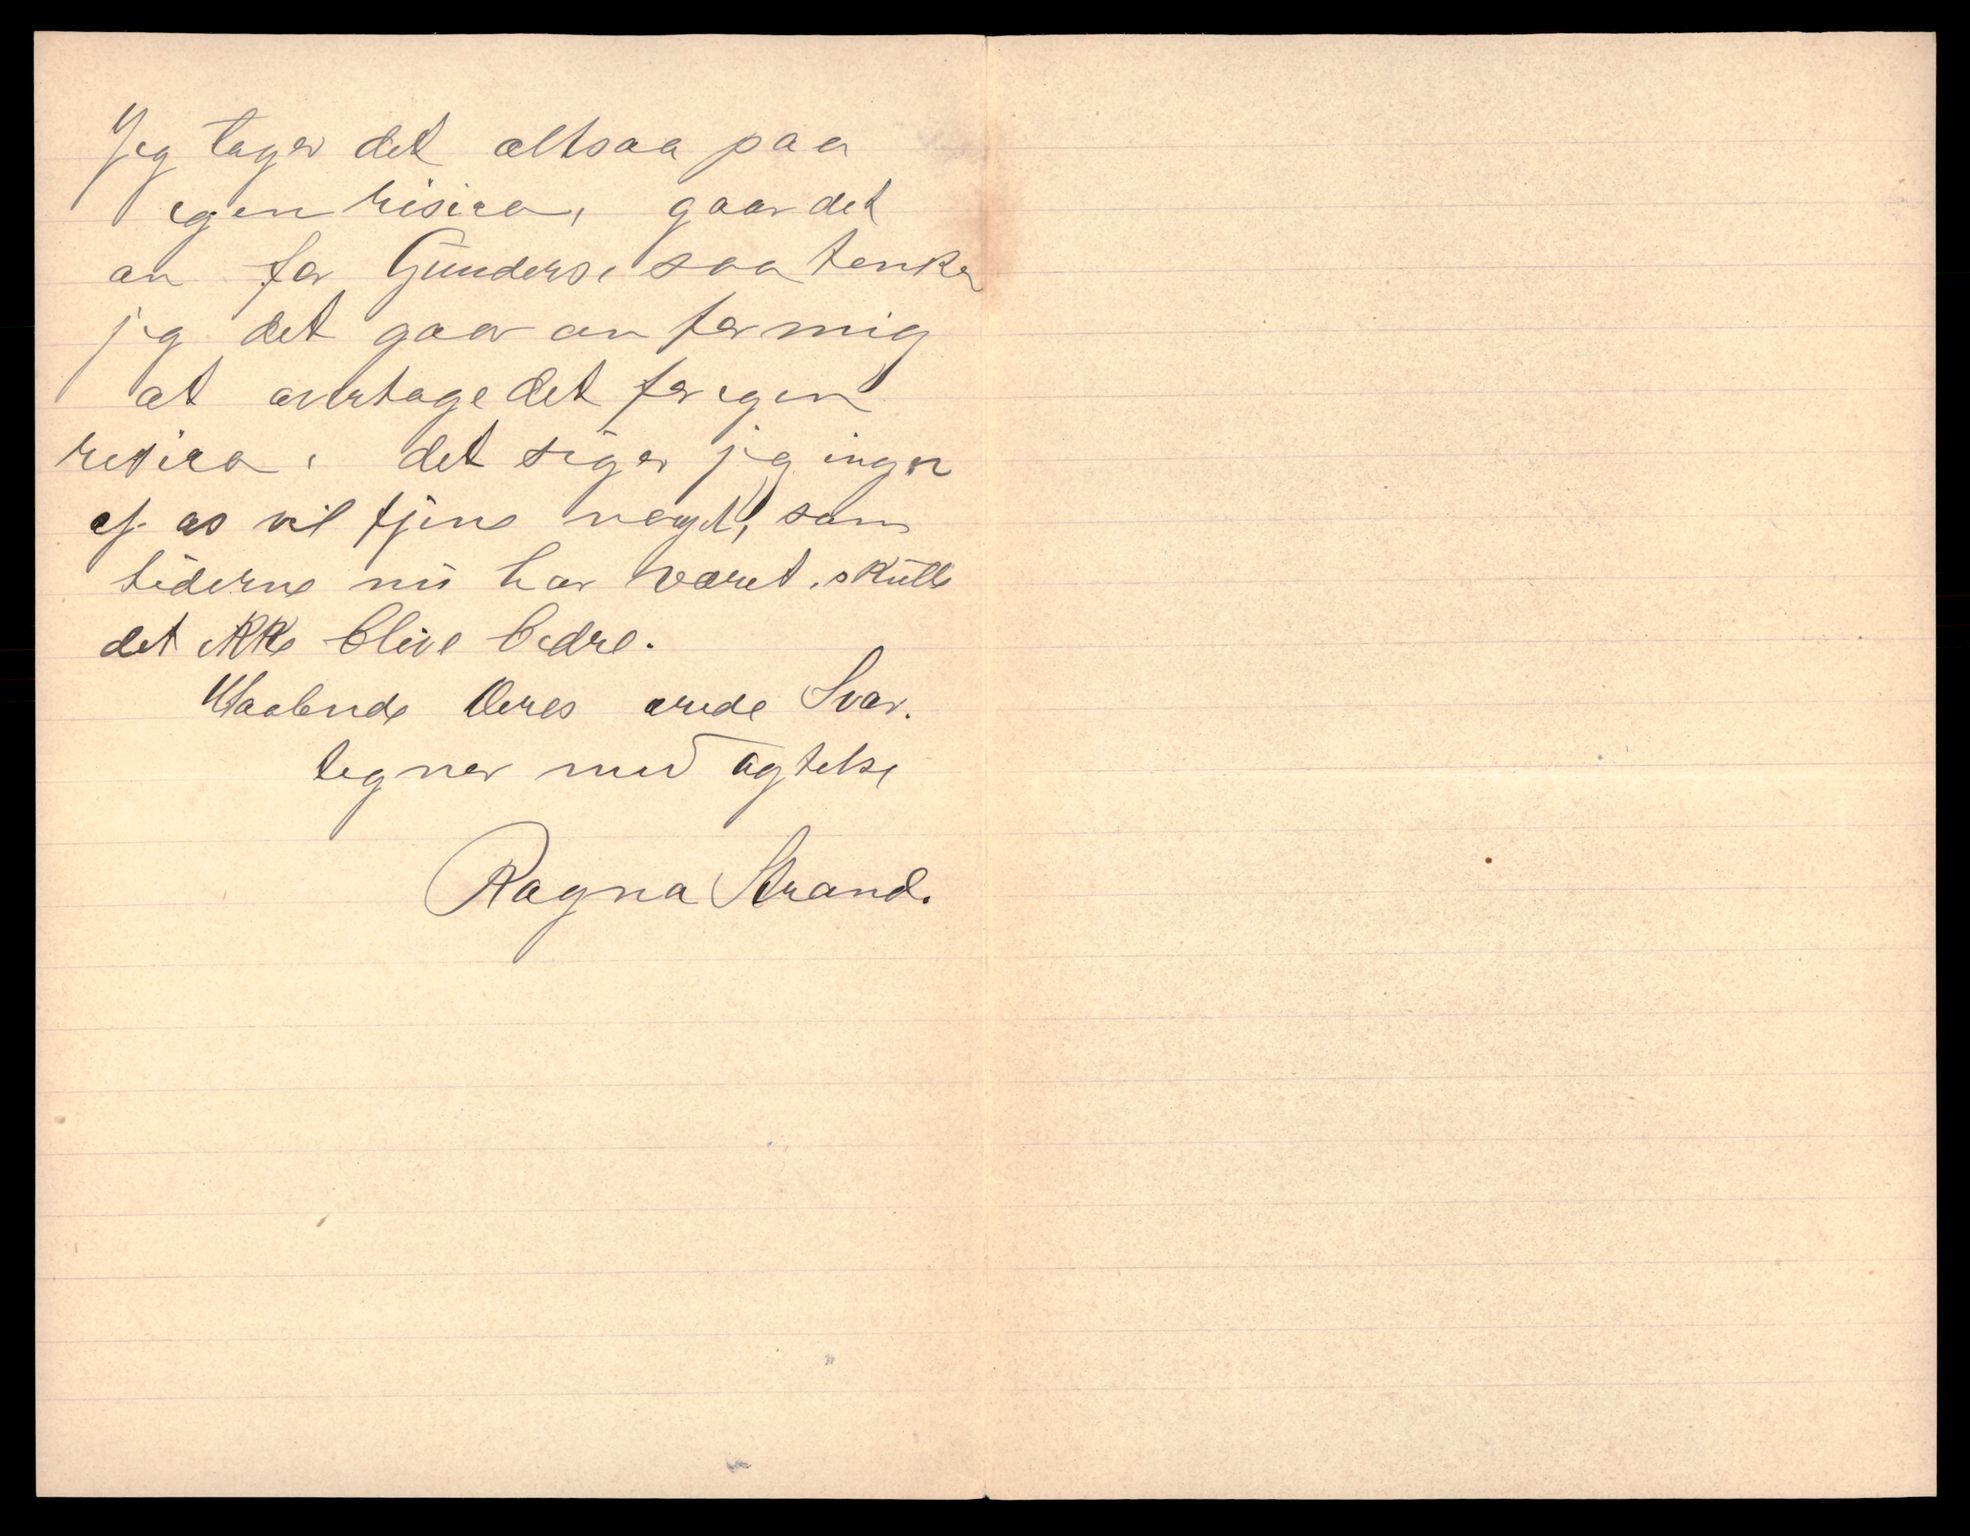 Jeg tager det altsaa paa
egen risico, gaar det
an for Gunders, saa tenker
jeg det gaar an for mig
at overtage det for egen
risico, det siger jeg ingen
af os vil tjene noget, som
tiderne nu har været. skulle
det ikke blive bedre.
Deres ærede Svar.
tegner med agtelse
Ragna Strand.